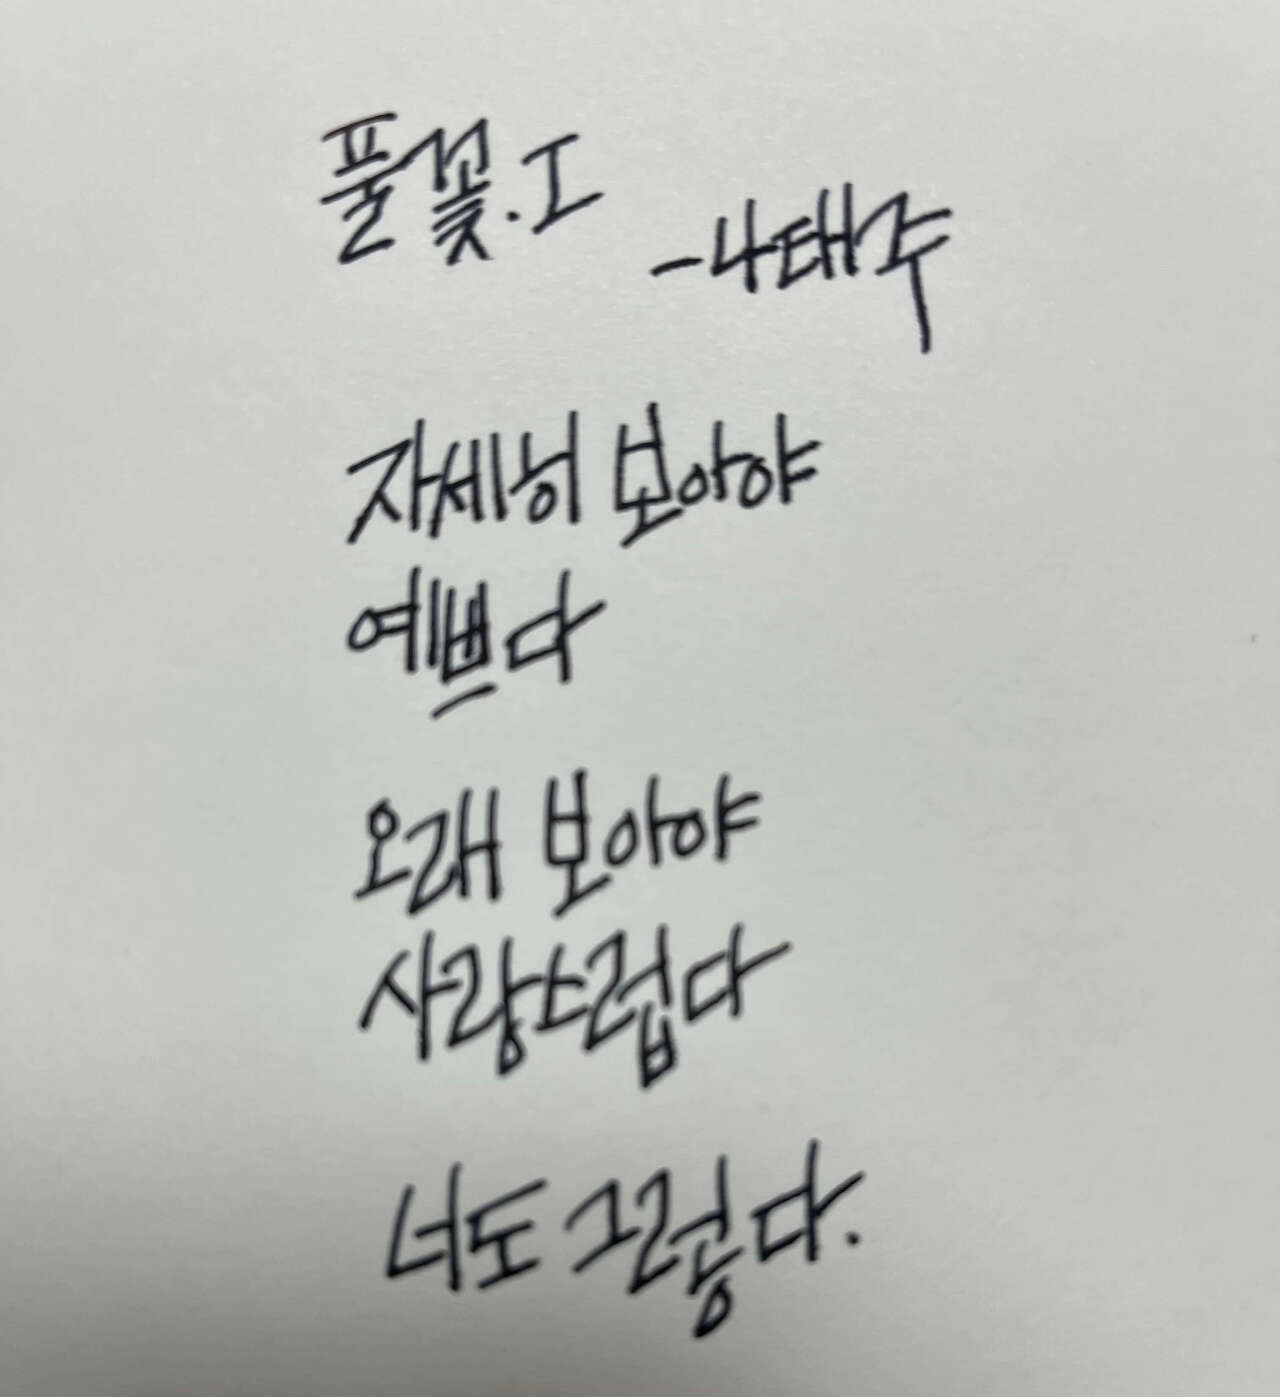 풀꽃.I
-나태주
자세히 보아야
예쁘다
오래 보아야
사랑스럽다
너도 그렇다.